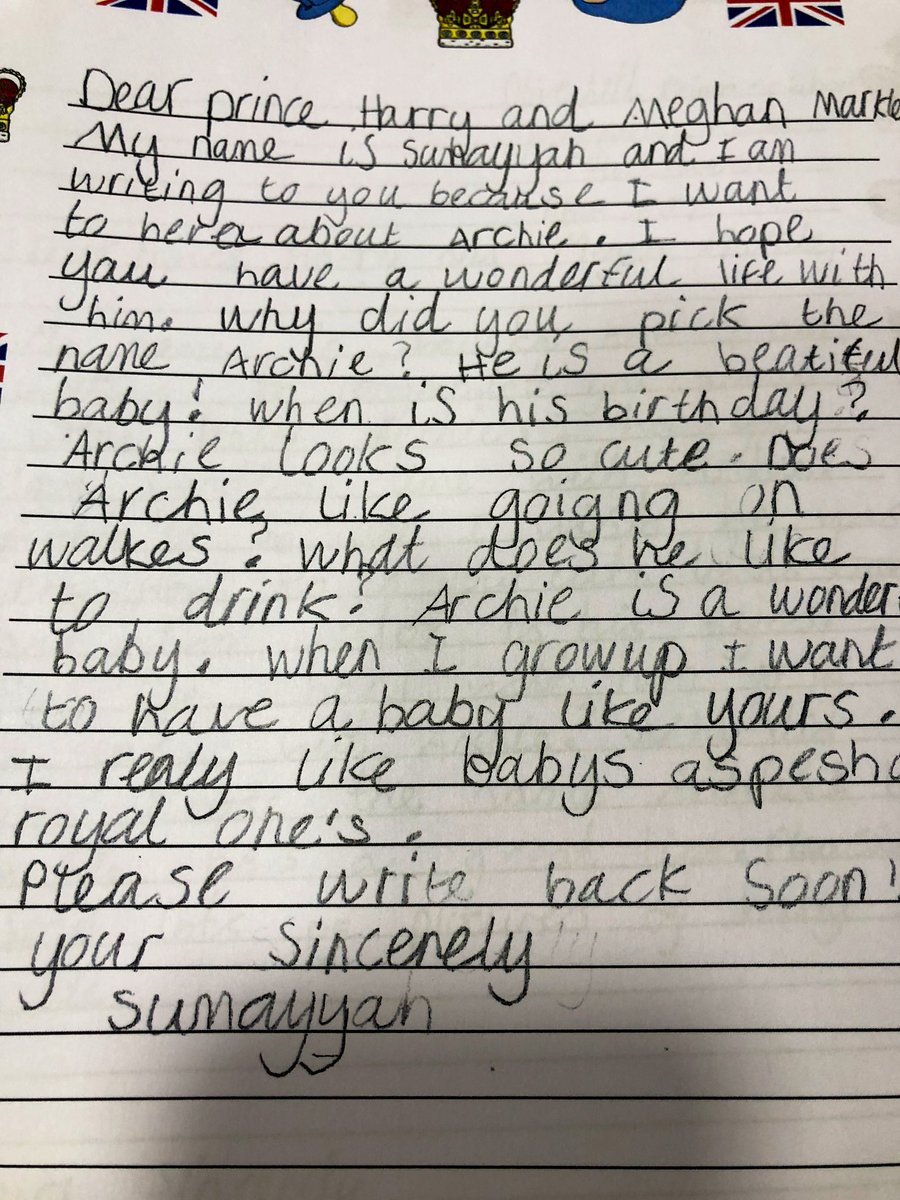 Dear prince Harry and Meghan Markle
My name is sumayyah and I am
writing to you because I want
to here about Archie. I hope
you have a wonderful life with
him. why did you pick the
name Archie? He is a beatiful
baby! when is his birthday?
Archie looks so cute. Does
Archie like goigng on
walkes? what does he like
to drink? Archie is a wonder
baby. when I grow up I want
to have a baby like yours.
I realy like babys aspesha
royal one's.
Please write back soon!
your sincerely
sumayyah